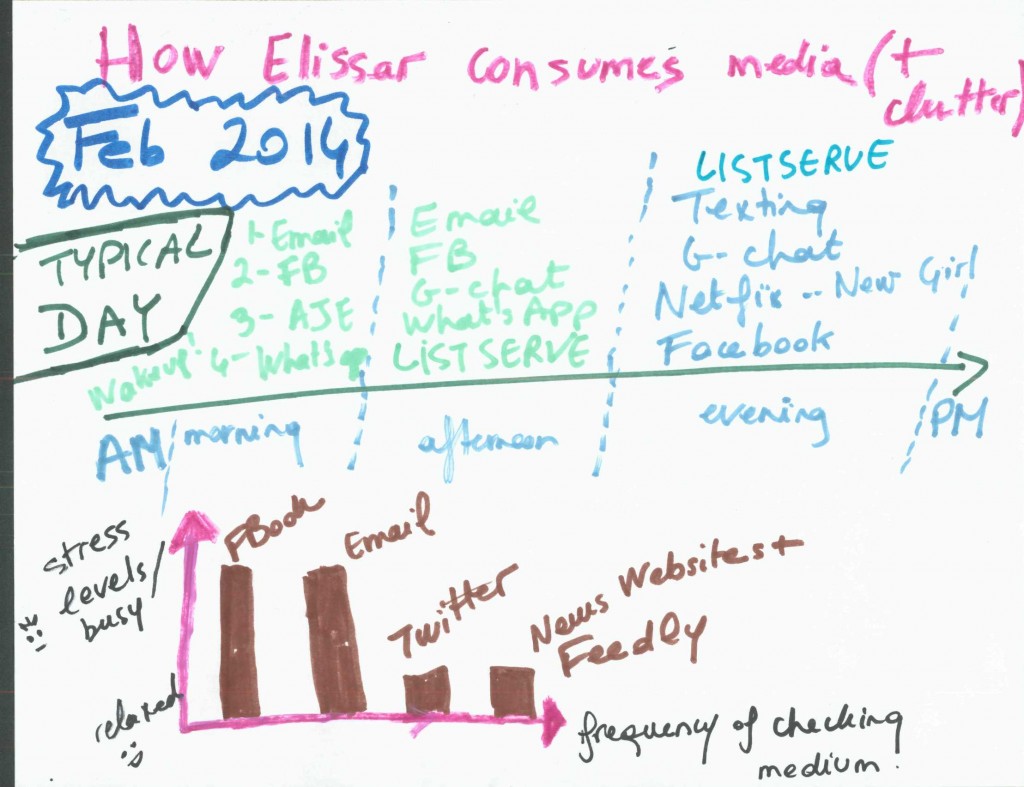 How Elissar consumes media (+ clutter)
Feb 2014
TYPICAL
DAY
Wake up!
1- Email
2- FB
3- AJE
4- Whatsapp
Email
FB
G-chat
What's App
LISTSERVE
LISTSERVE
Texting
G-chat
Netflix -- New Girl
Facebook
AM
morning
afternoon
evening
PM
stress
levels/
busy
relaxed
FBook
Email
Twitter
News Websites +
Feedly
frequency of checking
medium.